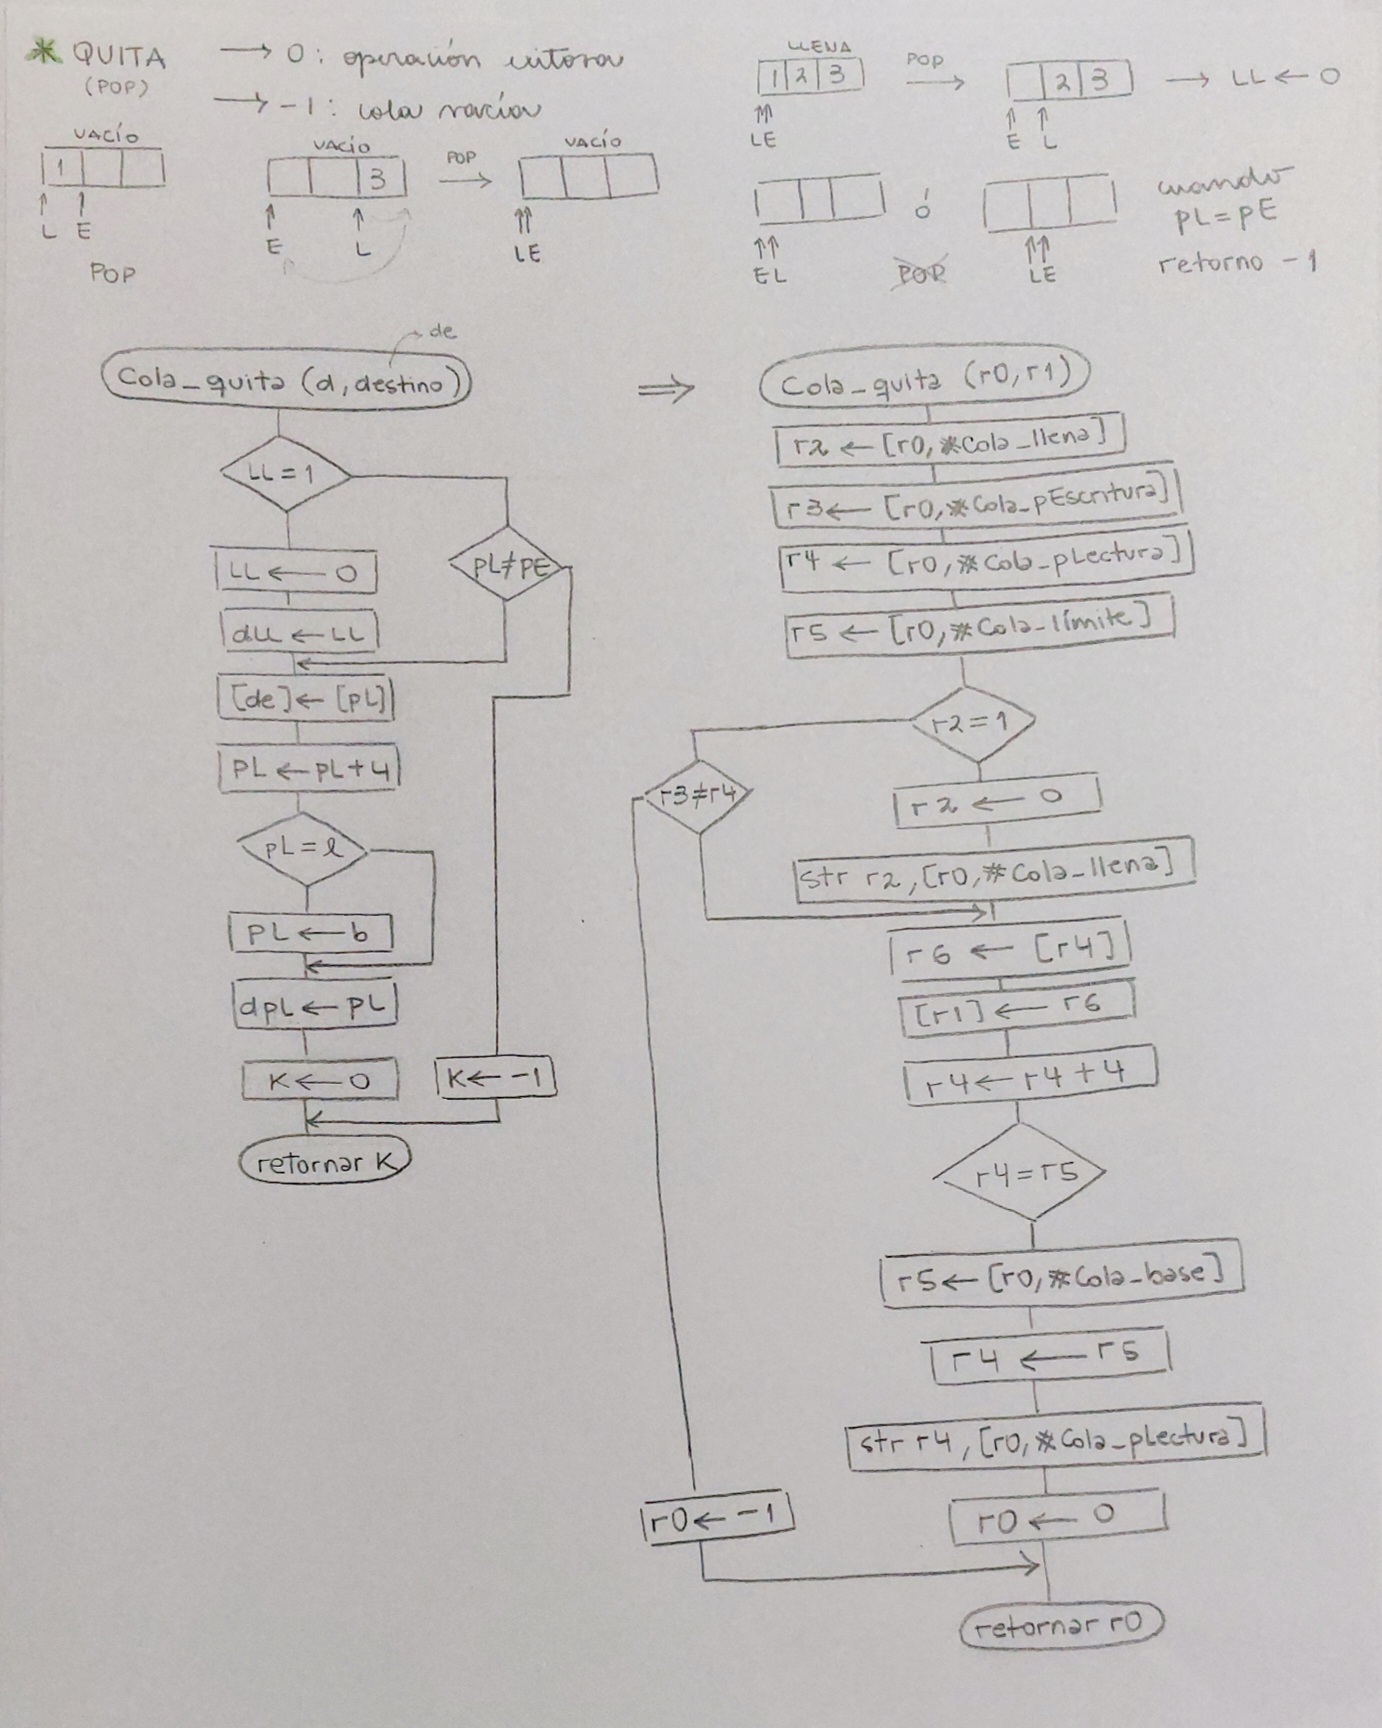 * QUITA → 0: operación exitosa
(POP) → -1: cola vacía
VACÍO
1
L E
POP
VACÍO
3
E L
POP →
VACÍO
LE
LLENA
1 2 3
LE
POP →
2 3
E L
→ LL ← 0
EL
ó
POP
LE
cuando
pL = pE
retorno -1
de
Cola_quita (d, destino)
LL = 1
pL ≠ pE
LL ← 0
dLL ← LL
[de] ← [pL]
PL ← pL + 4
pL = l
PL ← b
dpL ← pL
K ← 0
K ← -1
retornar K
⇒
Cola_quita (r0, r1)
r2 ← [r0, #Cola_llena]
r3 ← [r0, #Cola_pEscritura]
r4 ← [r0, #Cola_pLectura]
r5 ← [r0, #Cola_límite]
r2 = 1
r3 ≠ r4
r2 ← 0
str r2, [r0, #Cola_llena]
r6 ← [r4]
[r1] ← r6
r4 ← r4 + 4
r4 = r5
r5 ← [r0, #Cola_base]
r4 ← r5
str r4, [r0, #Cola_pLectura]
r0 ← -1
r0 ← 0
retornar r0